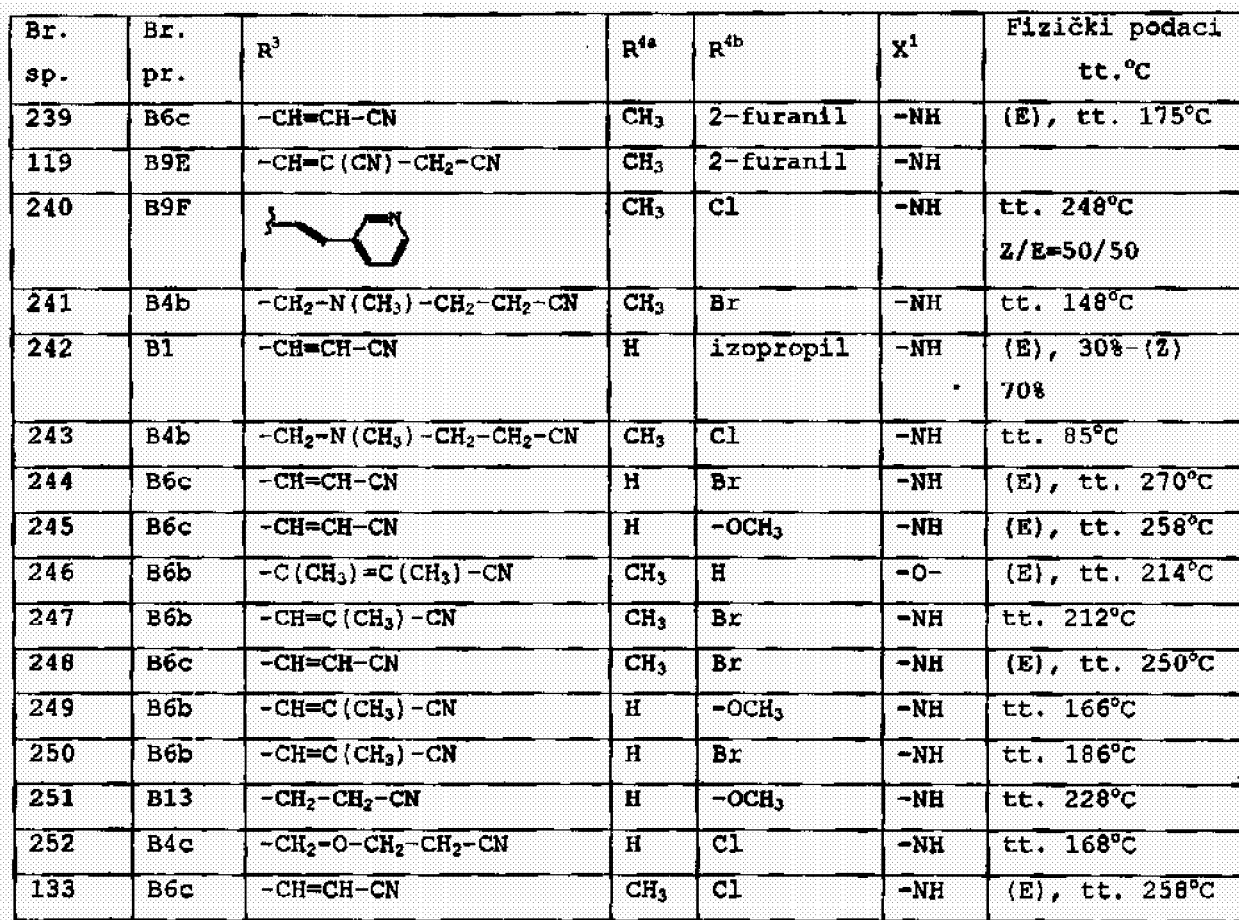 Br. sp. Br. pr. R³ R⁴ᵃ R⁴ᵇ X¹ Fizički podaci tt.°C
239 B6c -CH=CH-CN CH₃ 2-furanil -NH (E), tt. 175°C
119 B9E -CH=C(CN)-CH₂-CN CH₃ 2-furanil -NH
240 B9F N CH₃ Cl -NH tt. 248°C
Z/E=50/50
241 B4b -CH₂-N(CH₃)-CH₂-CH₂-CN CH₃ Br -NH tt. 148°C
242 B1 -CH=CH-CN H izopropil -NH (E), 30%-(Z)
70%
243 B4b -CH₂-N(CH₃)-CH₂-CH₂-CN CH₃ Cl -NH tt. 85°C
244 B6c -CH=CH-CN H Br -NH (E), tt. 270°C
245 B6c -CH=CH-CN H -OCH₃ -NH (E), tt. 258°C
246 B6b -C(CH₃)=C(CH₃)-CN CH₃ H -O- (E), tt. 214°C
247 B6b -CH=C(CH₃)-CN CH₃ Br -NH tt. 212°C
248 B6c -CH=CH-CN CH₃ Br -NH (E), tt. 250°C
249 B6b -CH=C(CH₃)-CN H -OCH₃ -NH tt. 166°C
250 B6b -CH=C(CH₃)-CN H Br -NH tt. 186°C
251 B13 -CH₂-CH₂-CN H -OCH₃ -NH tt. 228°C
252 B4c -CH₂-O-CH₂-CH₂-CN H Cl -NH tt. 168°C
133 B6c -CH=CH-CN CH₃ Cl -NH (E), tt. 258°C